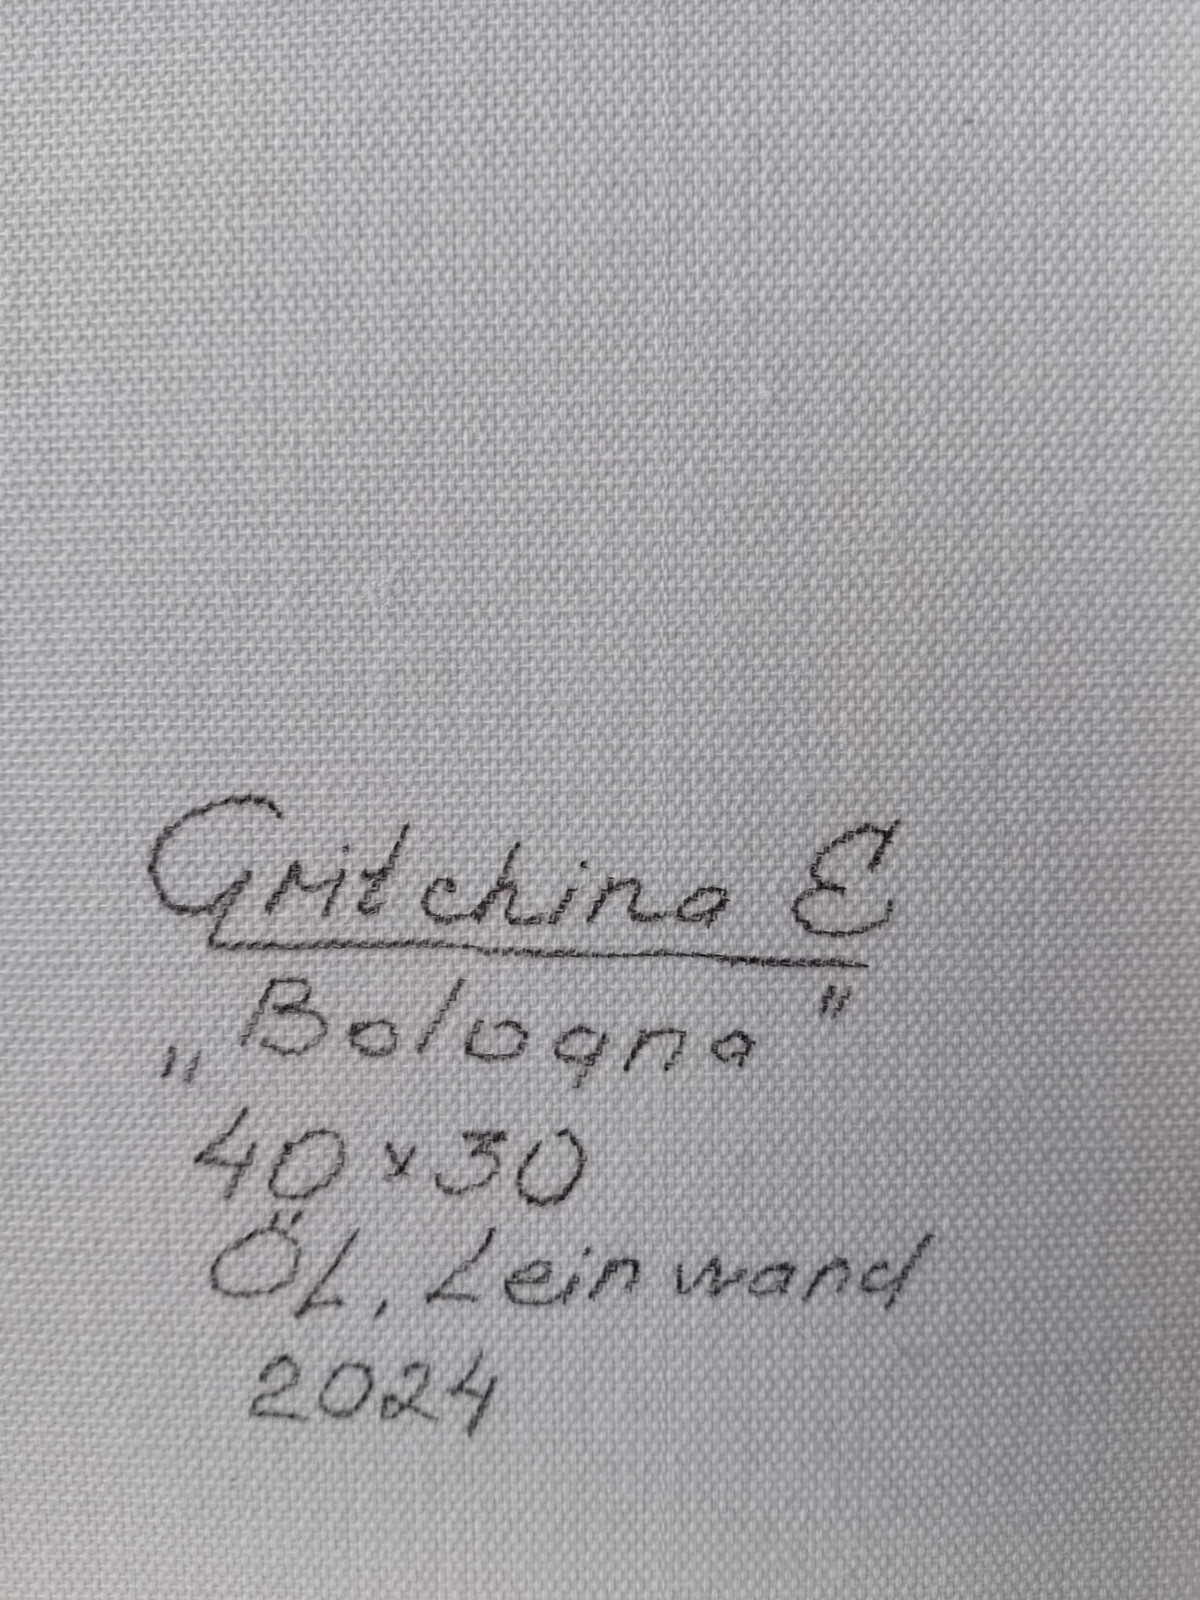 Gritchina E
„Bologna"
40 x 30
ÖL, Leinwand
2024